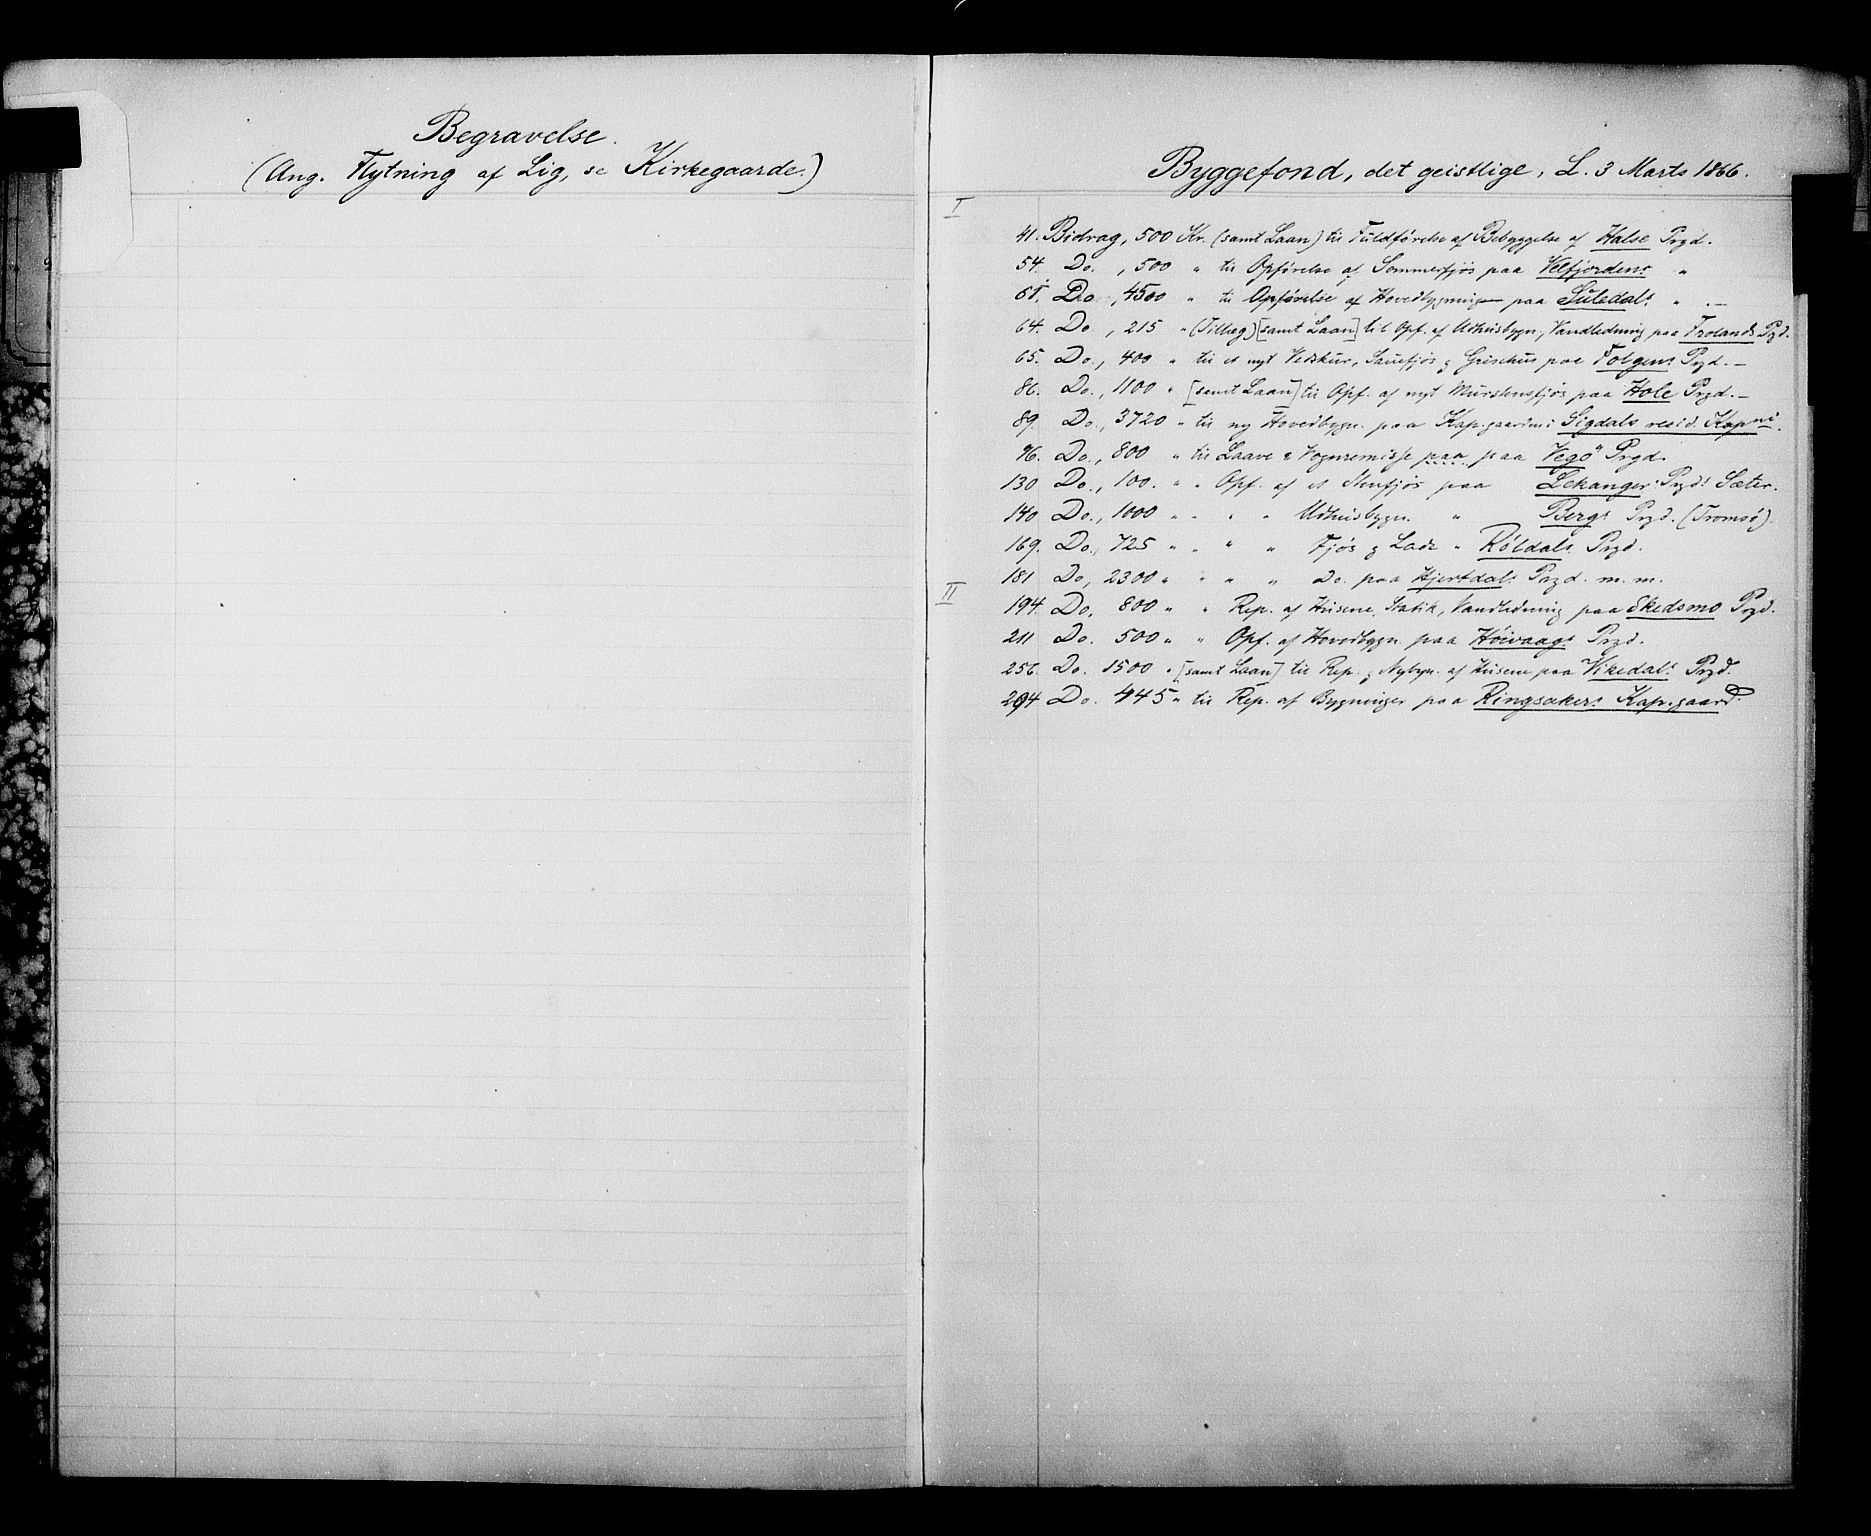 Begravelse.
(Ang. Flytning af Lig, se Kirkegaarde.)
Byggefond, det geistlige, L. 3 Marts 1866.
I
41. Bidrag, 500 Kr. (samt Laan) til Fuldførelse af Bebyggelse af Halse Prgd.
54. Do. , 500 " til Opførelse af Sommerfjøs paa Velfjordens "
61. Do , 4500 " til Opførelse af Hovedbygning paa Suledals " . —
64. Do , 215 " (Tillæg) [samt Laan] til Opf. af Udhusbygn., Vandledning paa Frolands Pgd.
65. Do., 400 " til et nyt Vedskur, Sauefjøs og Grisehus paa Fotgens Pgd. —
86. Do., 1100 " [samt Laan] til Opf. af nyt Murstensfjøs paa Hole Prgd. —
89. Do., 3720 " til ny Hovedbygn. paa Kap.gaarden i Sigdals resid. Kapni.
96. Do., 800 " til Laave & Vognremisse paa paa Vegø Prgd.
130 Do., 100. " " Opf. af et paa Lekanger Pgds Sæter.
140 Do., 1000 " " " " Udhusbygn. " Bergs Pgd. (Tromsø).
169. Do., 725 " " " " Fjøs og Lade " Røldals Prgd.
181 Do, 2300 " " " " Do. paa Hjertdals Pgd. m. m.
II
194. Do, 800 " " Rep. af Husene, Stakit, Vandledning paa Skedsmo Pgd.
211 Do. 500 " " Opf. af Hovedbygn paa Høivaags Pgd.
256. Do. 1500 " [samt Laan] til Rep. og Nybygn. af Husene paa Vikedals Pgd.
294 Do. 445 " til Rep. af Bygninger paa Ringsakers Kap.gaard.